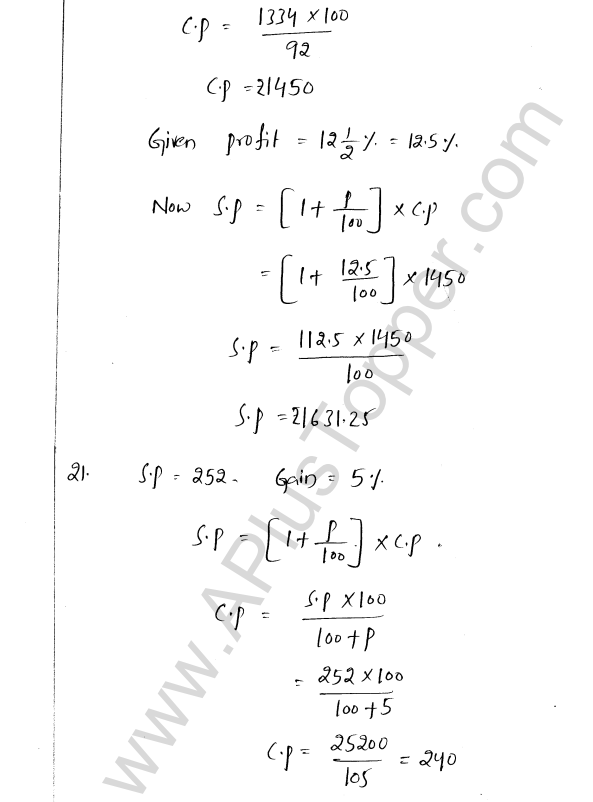 C.P = 1334 × 100 / 92
C.P = ₹1450
Given profit = 12 1/2 % = 12.5 %.
Now S.P = [1 + P/100] × C.P
= [1 + 12.5/100] × 1450
S.P = 112.5 × 1450 / 100
S.P = ₹1631.25
21. S.P = 252. Gain = 5 %
S.P = [1 + P/100] × C.P.
C.P = S.P × 100 / 100 + P
= 252 × 100 / 100 + 5
C.P = 25200 / 105 = 240
www.APlusTopper.com